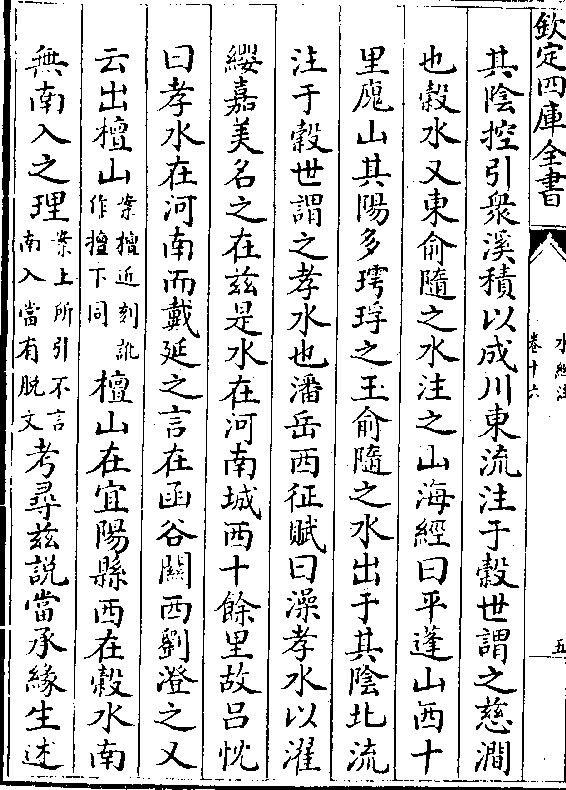 欽定四庫全書
水經注
卷十六
五
其陰控引衆溪積以成川東流注于穀世謂之慈澗
也穀水又東俞隨之水注之山海經曰平蓬山西十
里廆山其陽多㻬琈之玉俞隨之水出于其陰北流
注于穀世謂之孝水也潘岳西征賦曰澡孝水以濯
纓嘉美名之在兹是水在河南城西十餘里故吕忱
曰孝水在河南而戴延之言在函谷關西劉澄之又
云出檀山案檀近刻訛作擅下同檀山在宜陽縣西在穀水南
無南入之理案上所引不言南入當有脱文考尋兹説當承緣生述